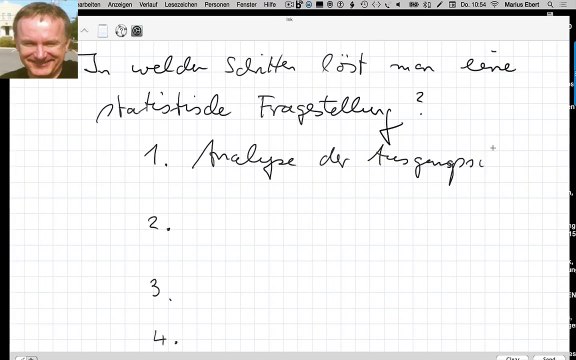 arbeiten Anzeigen Verlauf Lesezeichen Personen Fenster Hilfe Do. 10:54 Marius Ebert
In welchen Schritten löst man eine
statistische Fragestellung?
1. Analyse der Ausgangssi
2.
3.
4.
Clear Send